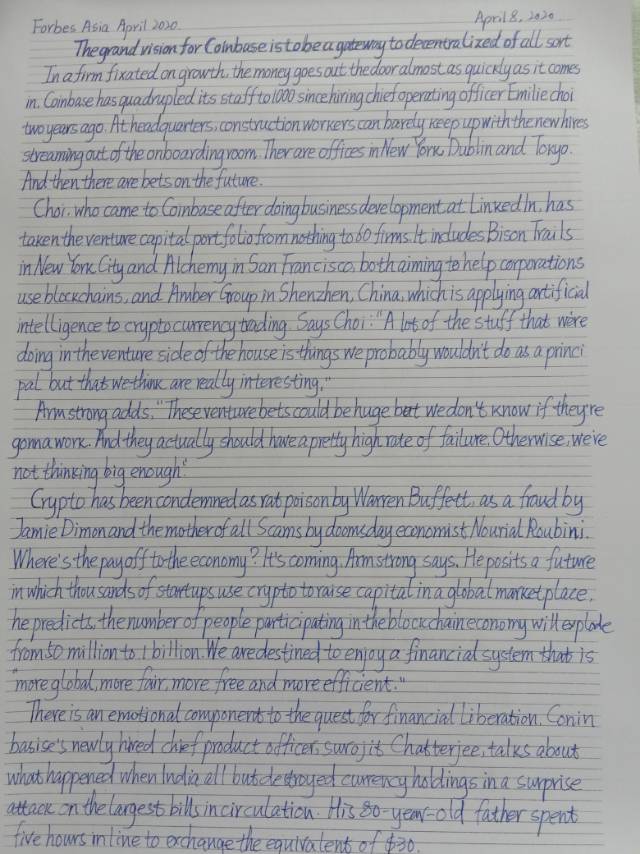 Forbes Asia April 2020. April 8, 2020
The grand vision for Coinbase is to be a gateway to decentralized of all sort
In a firm fixated on growth, the money goes out the door almost as quickly as it comes
in. Coinbase has quadrupled its staff to 1000 since hiring chief operating officer Emilie choi
two years ago. At headquarters, construction workers can barely keep up with the new hires
streaming out of the onboarding room. Ther are offices in New York, Dublin and Tokyo.
And then there are bets on the future.
Choi, who came to Coinbase after doing business development at LinkedIn, has
taken the venture capital portfolio from nothing to 60 firms. It includes Bison Trails
in New York City and Alchemy in San Francisco, both aiming to help corporations
use blockchains, and Amber Group in Shenzhen, China, which is applying artificial
intelligence to cryptocurrency trading. Says Choi: "A lot of the stuff that we're
doing in the venture side of the house is things we probably wouldn't do as a princi
pal but that we think are really interesting."
Armstrong adds, "These venture bets could be huge but we don't know if they're
gonna work. And they actually should have a pretty high rate of failure. Otherwise, we're
not thinking big enough."
Crypto has been condemned as rat poison by Warren Buffett, as a fraud by
Jamie Dimon and the mother of all Scams by doomsday economist Nourial Roubini.
Where's the payoff to the economy? It's coming, Armstrong says. He posits a future
in which thousands of startups use crypto to raise capital in a global marketplace.
he predicts, the number of people participating in the blockchain economy will explode
from 50 million to 1 billion. We are destined to enjoy a financial system that is
"more global, more fair, more free and more efficient."
There is an emotional component to the quest for financial liberation. Conin
basise's newly hired chief product officer, surojit Chatterjee, talks about
what happened when India all but destroyed currency holdings in a surprise
attack on the largest bills in circulation. His 80-year-old father spent
five hours in line to exchange the equivalent of $30.